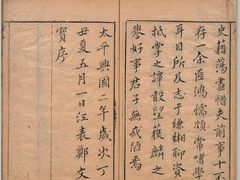 史籍蕩盡惜夫前事十不
存一余匪鴻儒頗常嗜學
耳目所及志于縑緗聊資
抵掌之譚敢望獲麟之
譽好事君子無或陋焉
太平興國二年歲次丁
丑夏五月一日江表鄭文
寶序